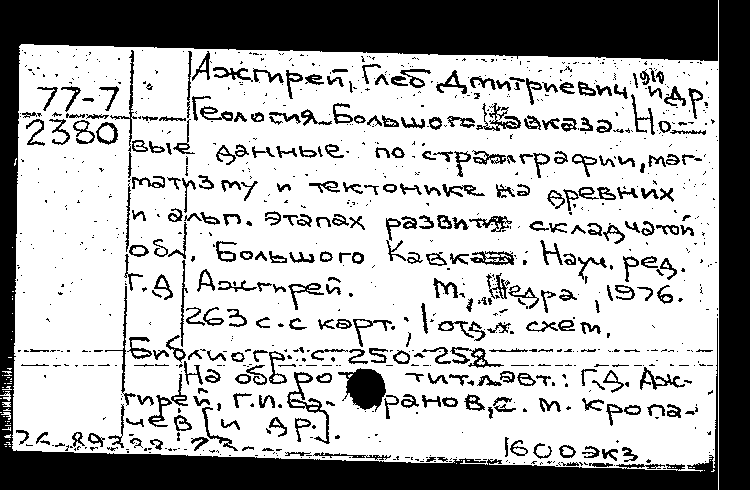 Ажгирей, Глеб Дмитриевич, 1910 и др.
77-7
2380
Геология Большого Кавказа. Но-
вые данные по стратиграфии, маг-
матизму и тектонике на древних
и альп. этапах развития складчатой
обл. Большого Кавказа. Науч. ред.
Г.Д. Ажгирей. М., "Недра", 1976.
263 с. с карт.; 1 отд. л. схем.
Библиогр.: с. 250-258
На обороте тит. л. авт.: Г.Д. Аж-
гирей, Г.И. Ба- ранов, С. М. Кропа-
чев [и др.].
1600 экз.